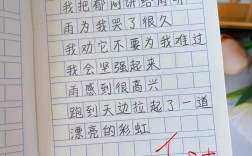 我把郁闷讲给雨听
雨为我哭了很久
我劝它不要为我难过
我会坚强起来
雨感到很高兴
跑到天边拉起了一道
漂亮的彩虹